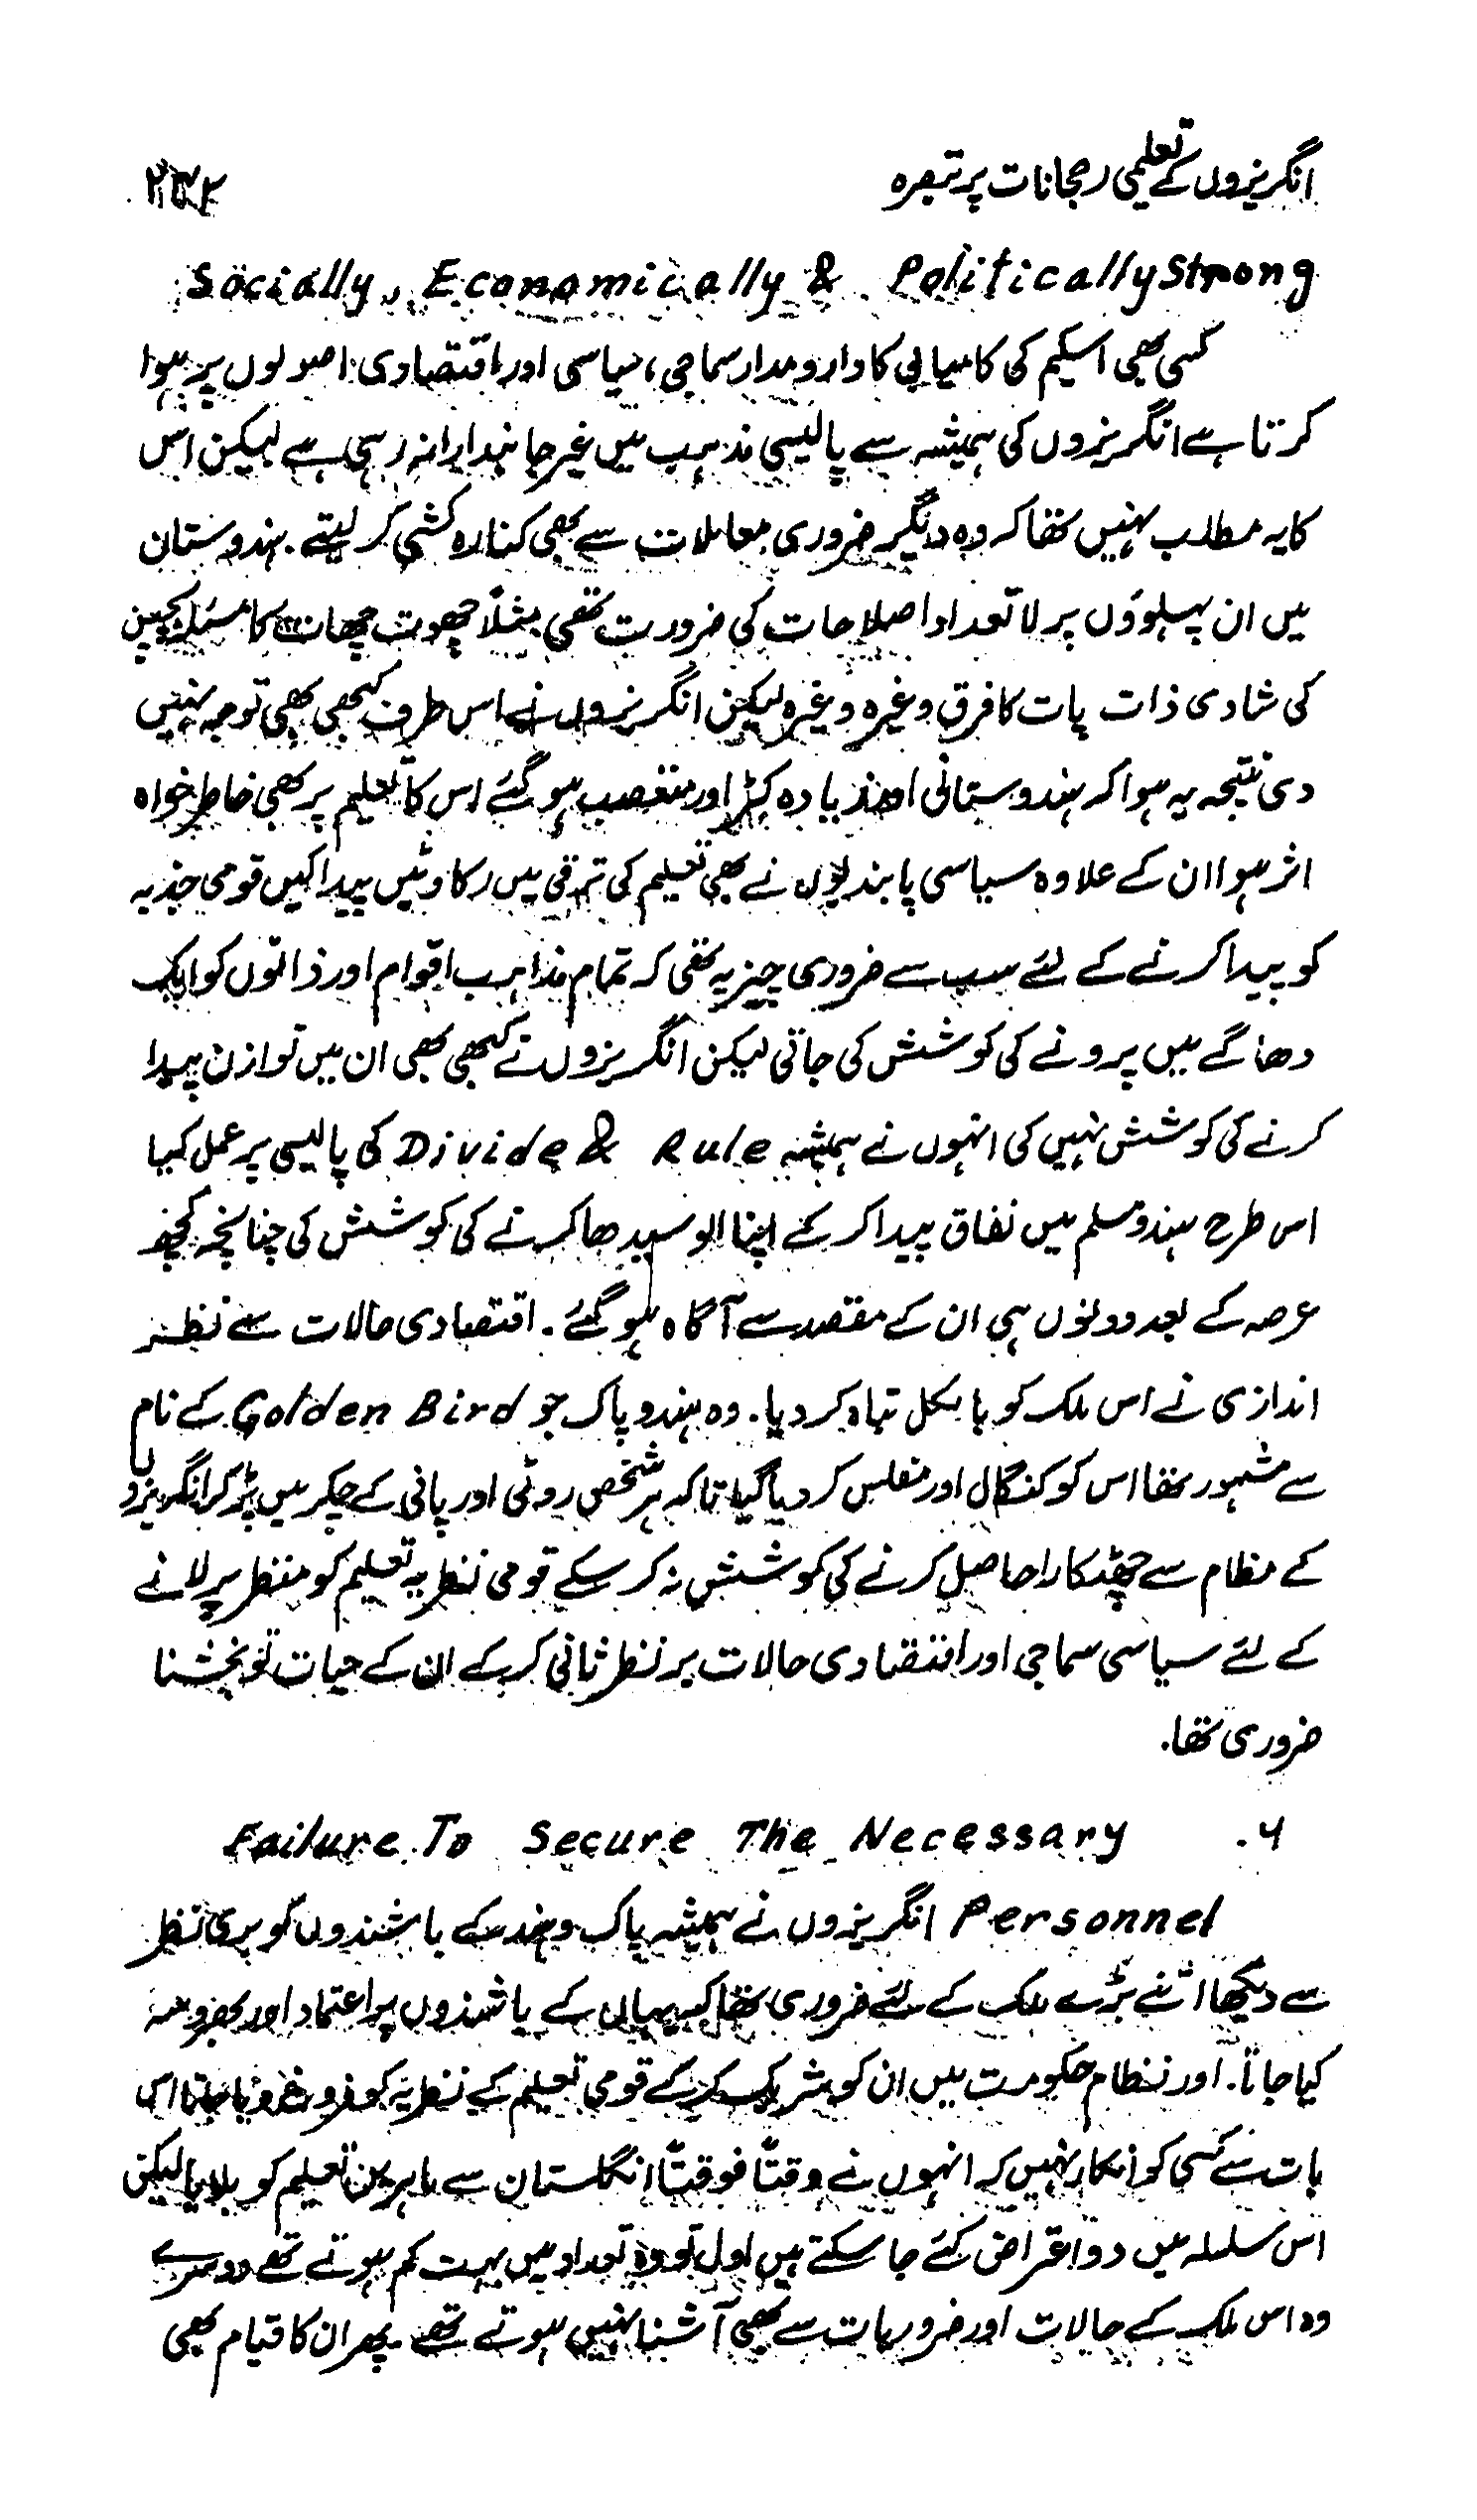 انگریزوں کے تعلیمی رجحانات پر تبصرہ
Socially, Economically & Politically Strong
کسی بھی اسکیم کی کامیابی کا دارومدار سماجی، سیاسی اور اقتصادی اصولوں پر ہوا
کرتا ہے انگریزوں کی ہمیشہ سے پالیسی مذہب میں غیر جانبدارانہ رہی ہے لیکن اس
کا یہ مطلب نہیں تھا کہ وہ دیگر ضروری معاملات سے بھی کنارہ کشی کر لیتے۔ ہندوستان
میں ان پہلوؤں پر لاتعداد اصلاحات کی ضرورت تھی مثلاً چھوت چھات کا مسئلہ بچپن
کی شادی ذات پات کا فرق وغیرہ وغیرہ لیکن انگریزوں نے اس طرف کبھی بھی توجہ نہیں
دی نتیجہ یہ ہوا کہ ہندوستانی اور زیادہ کٹر اور متعصب ہو گئے اس کا تعلیم پر بھی خاطر خواہ
اثر ہوا ان کے علاوہ سیاسی پابندیوں نے بھی تعلیم کی ترقی میں رکاوٹیں پیدا کیں قومی جذبہ
کو پیدا کرنے کے لئے سب سے ضروری چیز یہ تھی کہ تمام مذاہب اقوام اور ذاتوں کو ایک
دھاگے میں پرونے کی کوشش کی جاتی لیکن انگریزوں نے کبھی بھی ان میں توازن پیدا
کرنے کی کوشش نہیں کی انہوں نے ہمیشہ Divide & Rule کی پالیسی پر عمل کیا
اس طرح ہندو مسلم میں نفاق پیدا کر کے اپنا الو سیدھا کرنے کی کوشش کی چنانچہ کچھ
عرصہ کے بعد دونوں ہی ان کے مقصد سے آگاہ ہو گئے۔ اقتصادی حالات سے نظر
اندازی نے اس ملک کو بالکل تباہ کر دیا۔ وہ ہندو پاک جو Golden Bird کے نام
سے مشہور تھا اس کو کنگال اور مفلس کر دیا گیا تاکہ ہر شخص روٹی اور پانی کے چکر میں پڑ کر انگریزوں
کے مظام سے چھٹکارا حاصل کرنے کی کوشش نہ کر سکے قومی نظریہ تعلیم کو منظر پر لانے
کے لئے سیاسی سماجی اور اقتصادی حالات پر نظر ثانی کر کے ان کے حیات نو بخشنا
ضروری تھا۔
۶. Failure To Secure The Necessary
Personnel انگریزوں نے ہمیشہ پاک و ہند کے باشندوں کو بری نظر
سے دیکھا اتنے بڑے ملک کے لئے ضروری تھا کہ یہاں کے باشندوں پر اعتماد اور بھروسہ
کیا جاتا۔ اور نظام حکومت میں ان کو شریک کر کے قومی تعلیم کے نظریہ کو فروغ دیا جاتا اس
بات سے کسی کو انکار نہیں کہ انہوں نے وقتاً فوقتاً انگلستان سے ماہرین تعلیم کو بلایا لیکن
اس سلسلہ میں دو اعتراض کئے جا سکتے ہیں اول تو وہ تعداد میں بہت کم ہوتے تھے دوسرے
وہ اس ملک کے حالات اور ضروریات سے بھی آشنا نہیں ہوتے تھے پھر ان کا قیام بھی